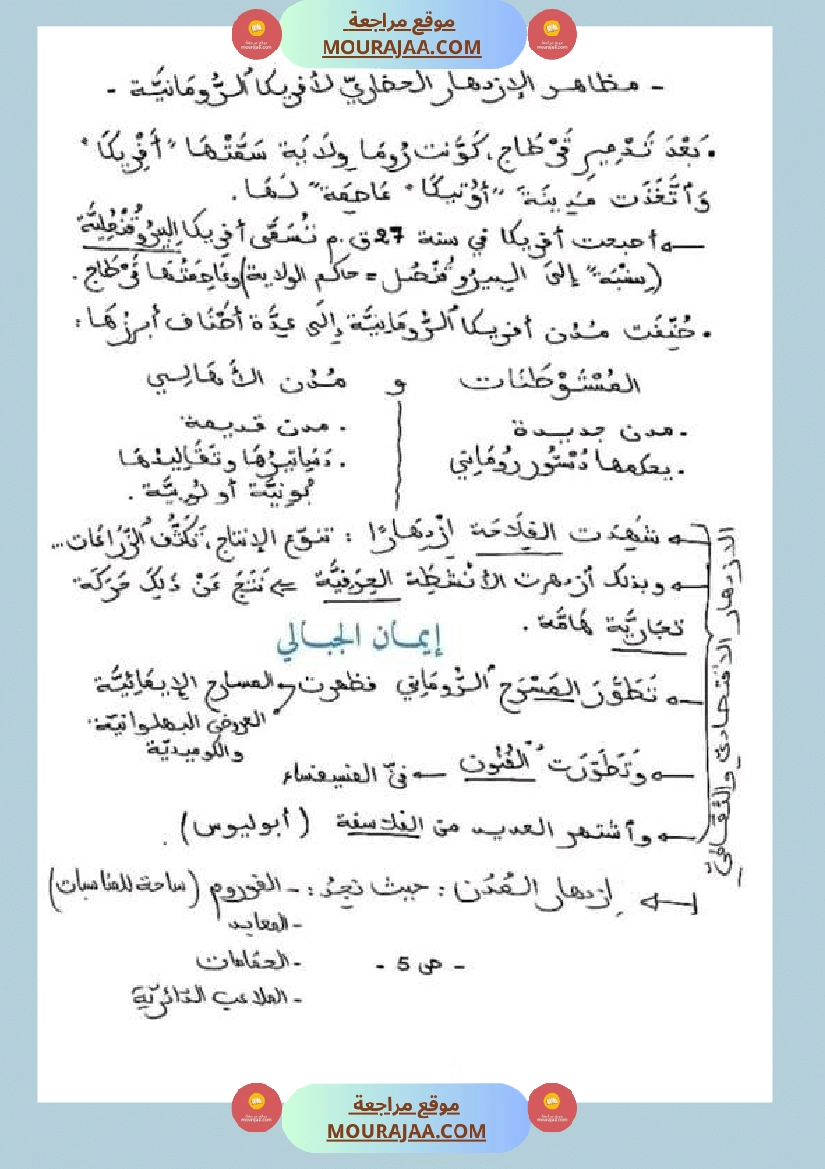 موقع مراجعة
MOURAJAA.COM
- مظاهر الإزدهار الحضاريّ لأفريكا الرُّومَانيَّة -
• بَعْدَ تَدْمِيرِ قَرْطَاج، كَوَّنت رُومَا وِلَايَة سَمَّتْهَا "أَفْرِيكَا"
وَاتَّخَذَت مَدِينَة "أُوتِيكَا" عَاصِمَة" لَهَا.
← أصبحت أفريكا في سنة 27 ق.م تُسَمَّى أفريكا البروقنصليَّة
(نِسْبَة" إلىَ البروقُنْصُل = حاكم الولاية) وعَاصِمَتُهَا قَرْطاج.
• صُنِّفَت مُدُن أفريكا الرُّومَانِيَّة إِلَى عِدَّة أصْنَاف أبرزُهَا:
المُسْتَوْطَنَات و مُدُن الأَهَالِي
• مدن جديدة
• يحكمها دُسْتُور رُومَانِي
• مدن قديمة
• دَسَاتِيرُهَا وتَقَالِيدُهَا
بُونِيَّة أو لُوبيَّة.
الازدهار الاقتصاديّ والثّقافيّ
← شَهِدَت الفِلَاحَة ازْدِهَارًا : تنوّع الإنتاج، تَكَثُّف الزِّرَاعَات...
← وبذلك ازدهرت الأنْشِطَة الحِرَفِيَّة ⇐ نَتَجَ عَنْ ذَلِكَ حَرَكَة
تِجَارِيَّة هَامَّة.
إيمان الجبالي
← تَطَوَّرَ المَسْرَح الرُّومَانِي فظهرت ← المسارح الإيمَائِيَّة
العروض البهلوانيّة
والكوميديّة
← وَتَطَوَّرَت الفُنُون ← فنّ الفسيفساء
← واشتهر العديد من الفلاسفة (أبوليوس).
⇐ ازدهار المُدُن : حيث نجِدُ : - الفوروم (ساحة للمناسبات)
- المعابد
- الحمّامات
- الملاعب الدّائريّة
- ص 5 -
موقع مراجعة
MOURAJAA.COM